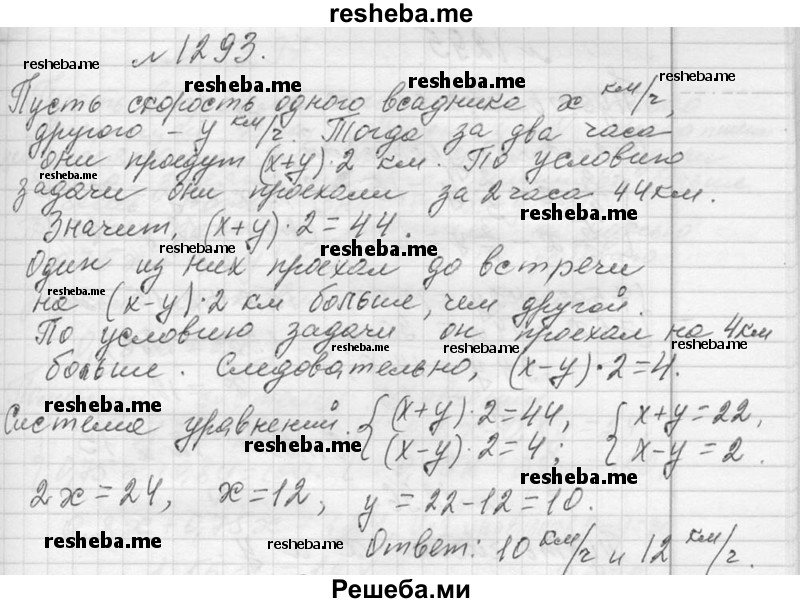 resheba.me
№ 1293.
resheba.me
resheba.me
resheba.me
Пусть скорость одного всадника x км/ч,
другого – y км/ч. Тогда за два часа
resheba.me
resheba.me
они проедут (x+y)·2 км. По условию
resheba.me
resheba.me
задачи они проехали за 2 часа 44 км.
resheba.me
Значит, (x+y)·2=44.
resheba.me
resheba.me
Один из них проехал до встречи
resheba.me
на (x-y)·2 км больше, чем другой.
По условию задачи он проехал на 4 км
resheba.me
resheba.me
resheba.me
больше. Следовательно, (x-y)·2=4.
resheba.me
Система уравнений. { (x+y)·2=44, { x+y=22,
(x-y)·2=4; x-y=2.
resheba.me
resheba.me
2x=24, x=12, y=22-12=10.
resheba.me
resheba.me
resheba.me
Ответ: 10 км/ч и 12 км/ч.
Решеба.ми